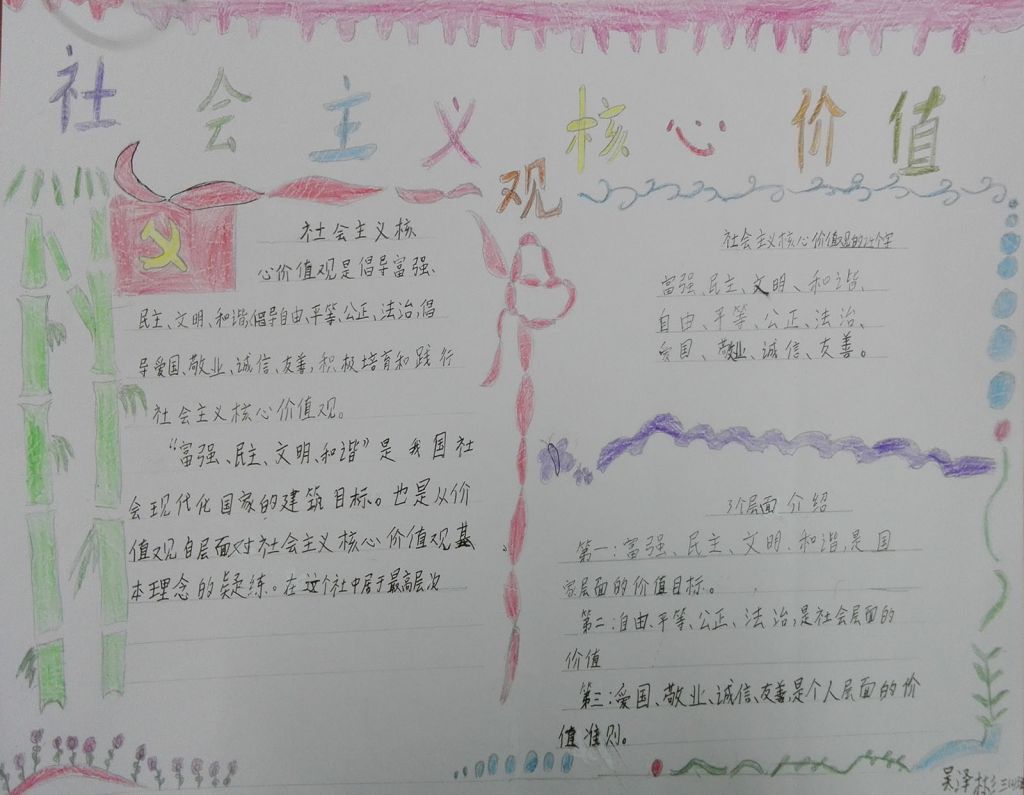 社会主义核心价值
观
社会主义核
心价值观是倡导富强、
民主、文明、和谐,倡导自由、平等、公正、法治,倡
导爱国、敬业、诚信、友善,积极培育和践行
社会主义核心价值观。
“富强、民主、文明、和谐”是我国社
会现代化国家的建筑目标。也是从价
值观目层面对社会主义核心价值观基
本理念的凝练。在这个社中居于最高层次
社会主义核心价值观的24个字
富强、民主、文明、和谐、
自由、平等、公正、法治、
爱国、敬业、诚信、友善。
3个层面介绍
第一:富强、民主、文明、和谐,是国
家层面的价值目标。
第二:自由、平等、公正、法治,是社会层面的
价值
第三:爱国、敬业、诚信、友善,是个人层面的价
值准则。
吴泽彬